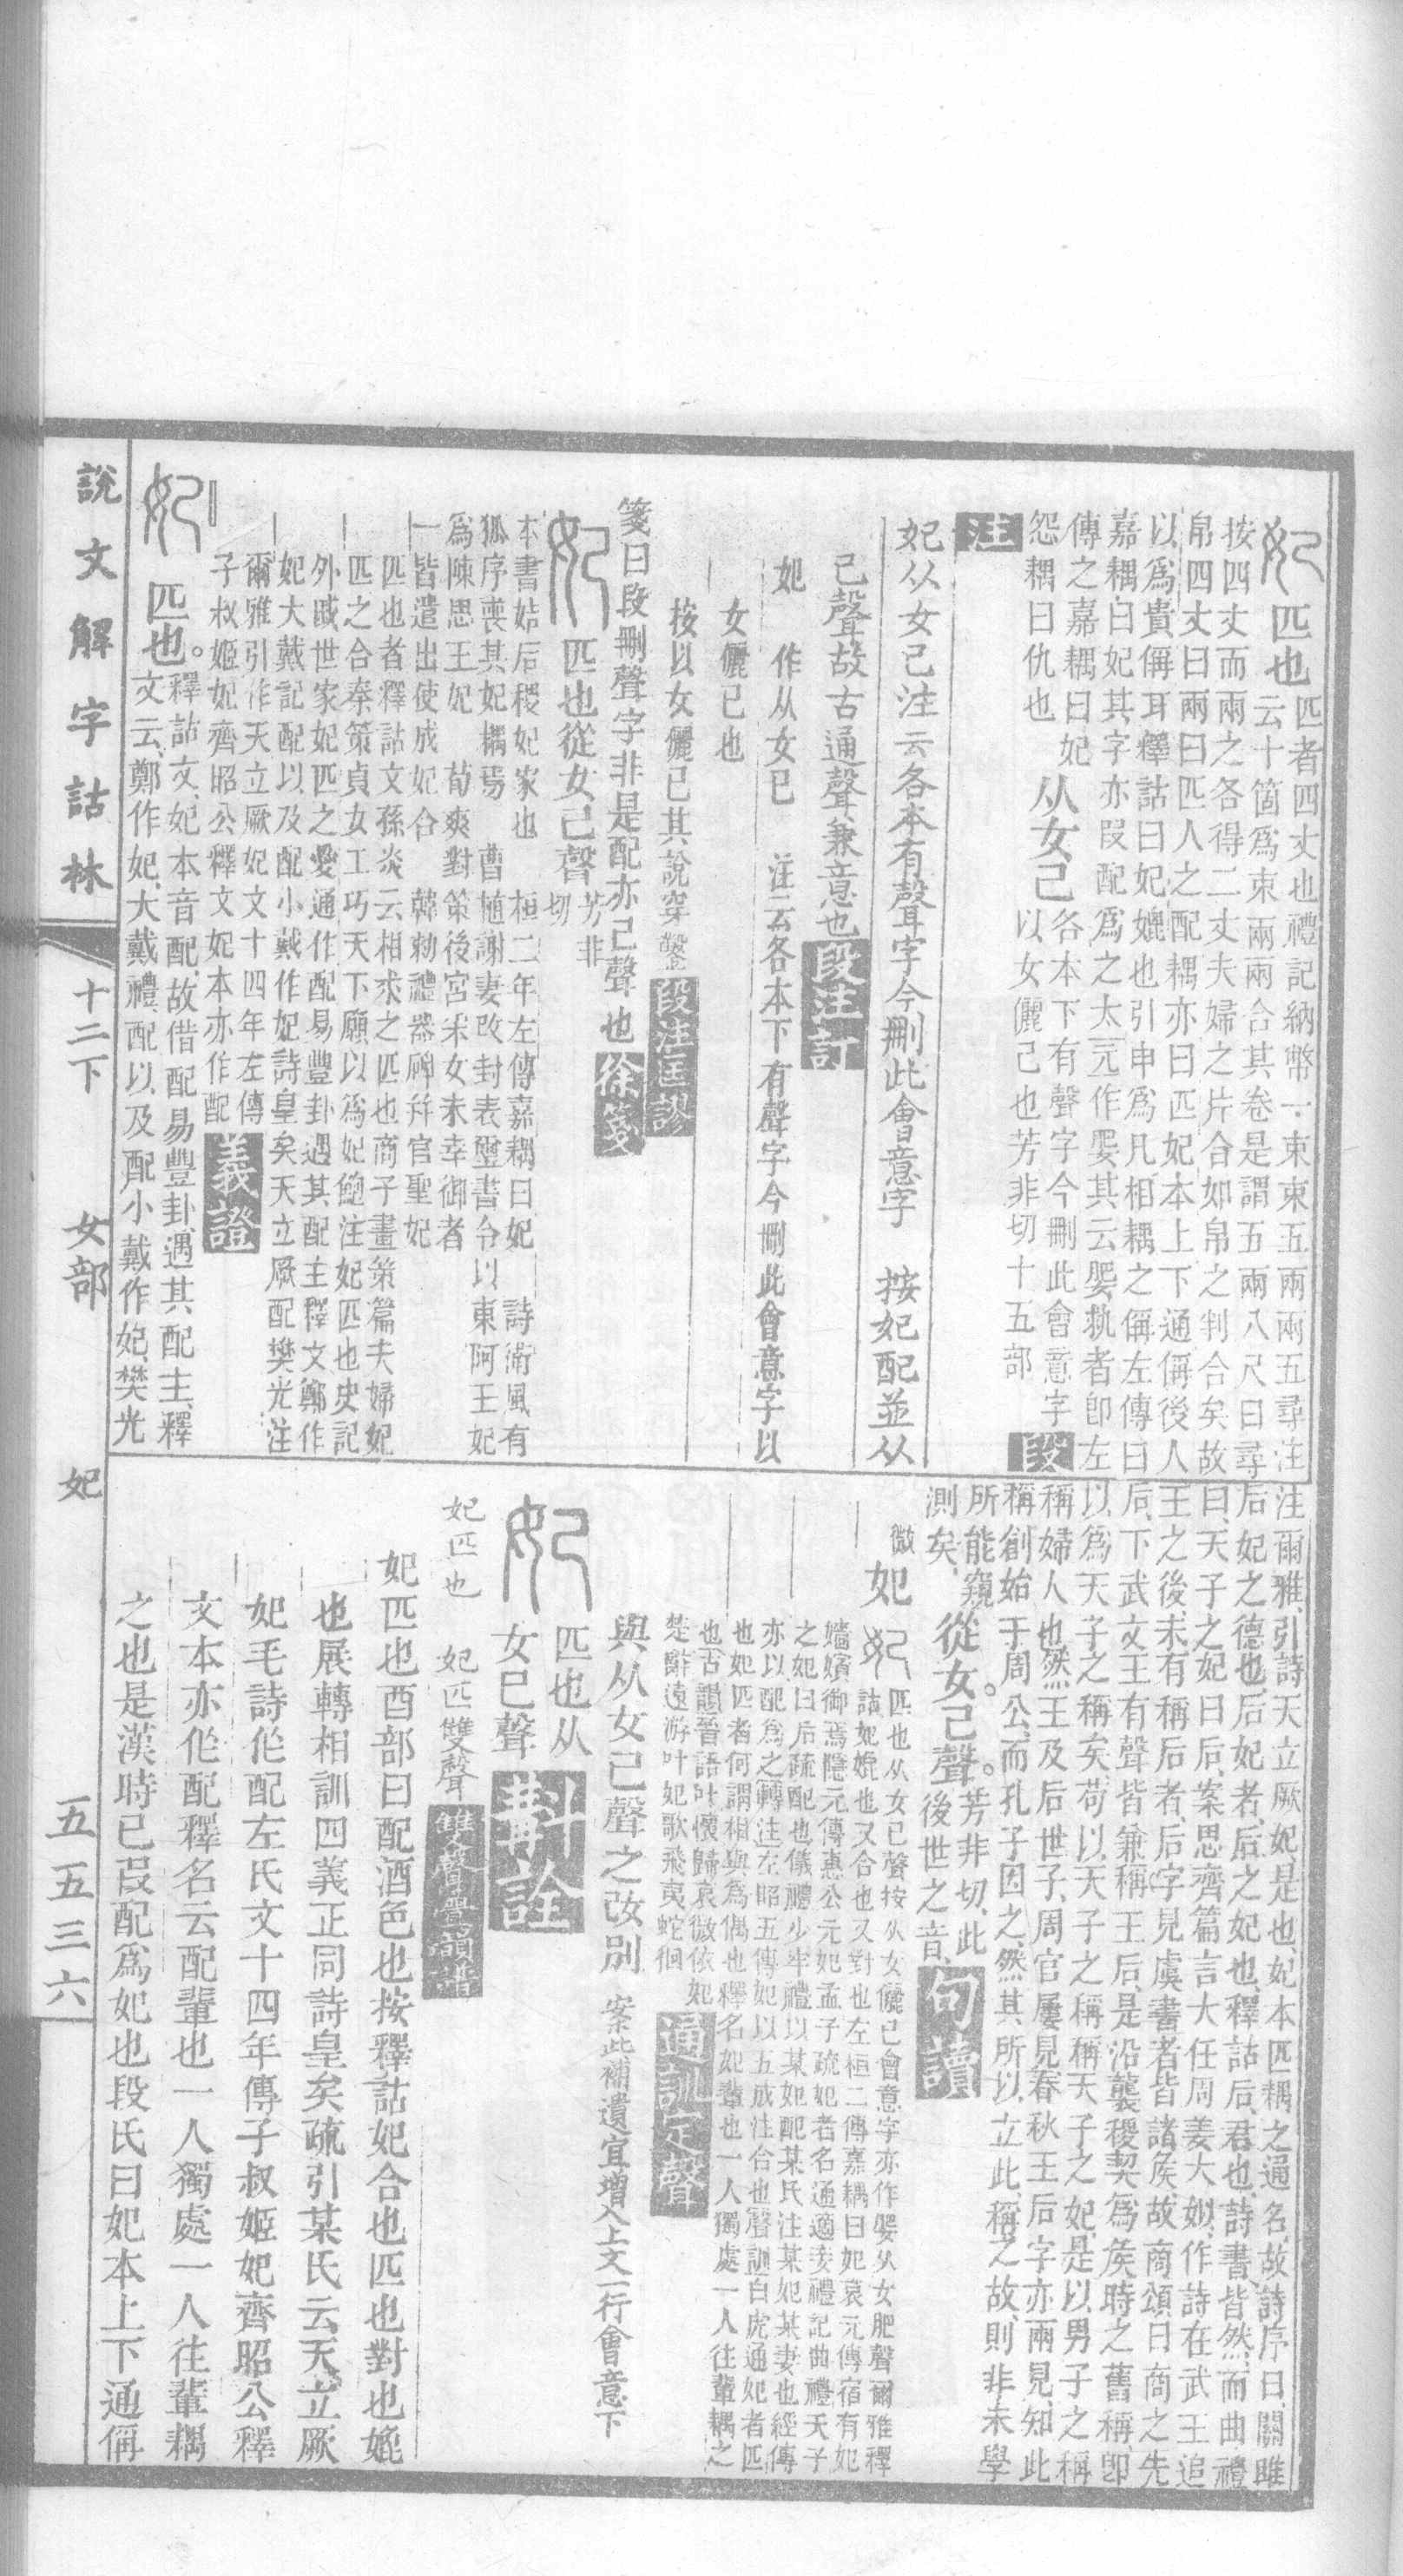 妃 匹也
匹者四丈也禮記納幣一束束五兩兩五尋注
云十箇為束兩兩合其卷是謂五兩八尺曰尋
按四丈而兩之各得二丈夫婦之片合如帛之判合矣故
帛四丈曰兩曰匹人之配耦亦曰匹妃本上下通偁後人
以爲貴偁耳釋詁曰妃媲也引申爲凡相耦之偁左傳曰
嘉耦曰妃其字亦叚配爲之太元作嬰其云嬰執者即左
傳之嘉耦曰妃
怨耦曰仇也
从女己
各本下有聲字今刪此會意字
以女儷己也芳非切十五部
段
注
妃从女己注云各本有聲字今刪此會意字 按妃配並从
己聲故古通聲兼意也
段注訂
妃 作从女巳 注云各本下有聲字今刪此會意字以
女儷己也
按以女儷已其說穿鑿
段注匡謬
箋曰段刪聲字非是配亦己聲也
徐箋
妃 匹也從女己聲
芳非
切
本書姞后稷妃家也 桓二年左傳嘉耦曰妃 詩衛風有
狐序喪其妃耦焉 曹植謝妻改封表璽書令以東阿王妃
爲陳思王妃 荀爽對策後宮采女未幸御者
一皆遣出使成妃合 韓勑禮器碑幷官聖妃
匹也者釋詁文孫炎云相求之匹也商子畫策篇夫婦妃
匹之合秦策貞女工巧天下願以爲妃鮑注妃匹也史記
外戚世家妃匹之愛通作配易豐卦遇其配主釋文鄭作
妃大戴記配以及配小戴作妃詩皇矣天立厥配樊光注
爾雅引作天立厥妃文十四年左傳
子叔姬妃齊昭公釋文妃本亦作配
義證
妃 匹也。
釋詁文妃本音配故借配易豐卦遇其配主釋
文云鄭作妃大戴禮配以及配小戴作妃樊光
注爾雅引詩天立厥妃是也妃本匹耦之通名故詩序曰關雎
后妃之德也后妃者后之妃也釋詁后君也詩書皆然而曲禮
曰天子之妃曰后案思齊篇言大任周姜大姒作詩在武王追
王之後未有稱后者后字見虞書者皆諸矦故商頌曰商之先
后下武文王有聲皆兼稱王后是沿襲稷契爲矦時之舊稱即
以爲天子之稱矣苟以天子之稱稱天子之妃是以男子之稱
稱婦人也然王及后世子周官屢見春秋王后字亦兩見知此
稱創始于周公而孔子因之然其所以立此稱之故則非末學
所能窺
測矣
從女。己聲。
芳非切此
後世之音
句讀
微 妃
妃 匹也从女己聲按从女儷己會意字亦作嬰从女肥聲爾雅釋
詁妃媲也又合也又對也左桓二傳嘉耦曰妃哀元傳宿有妃
嬙嬪御焉隱元傳惠公元妃孟子疏妃者名通適妾禮記曲禮天子
之妃曰后疏配也儀禮少牢禮以某妃配某氏注某妃某妻也經傳
亦以配爲之轉注左昭五傳妃以五成注合也聲訓白虎通妃者匹
也妃匹者何謂相與爲偶也釋名妃輩也一人獨處一人往輩耦之
也古韻晉語叶懷歸哀微依妃
楚辭遠游叶妃歌飛夷蛇徊
通訓定聲
與从女已聲之改別 案此補遺宜增入上文一行會意下
妃 匹也从
女巳聲
斠詮
妃匹也 妃匹雙聲
雙聲疊韻譜
妃匹也酉部曰配酒色也按釋詁妃合也匹也對也媲
也展轉相訓四義正同詩皇矣疏引某氏云天立厥
妃毛詩作配左氏文十四年傳子叔姬妃齊昭公釋
文本亦作配釋名云配輩也一人獨處一人往輩耦
之也是漢時已叚配爲妃也段氏曰妃本上下通偁
說文解字詁林 十二下 女部 妃 五五三六